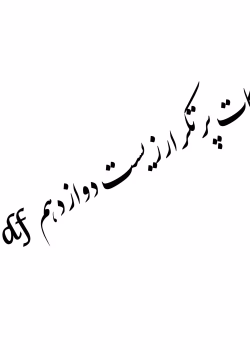 ات پر تکرار زیست دوازدهم df